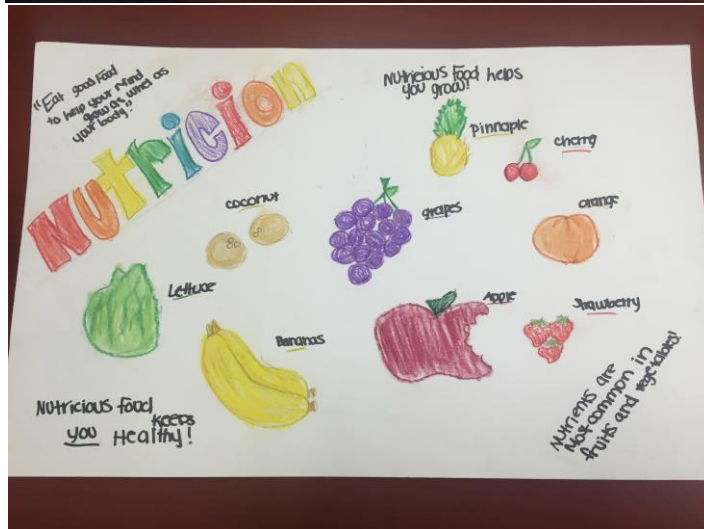 "Eat good Food
to help your Mind
grow as whel as
your body."
Nutricion
Nutricious food helps
you grow!
pinnaple
cherry
coconut
grapes
orange
Lettuce
Apple
Strawberry
Bananas
Nutricious food
keeps
you Healthy!
Nutrients are
Most common in
fruits and vegetables!